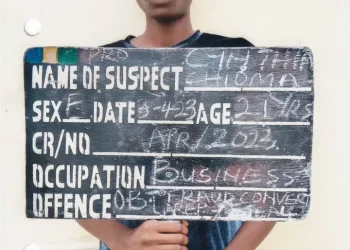 PRO
NAME OF SUSPECT CYNTHIA
CHIOMA
SEX F DATE 3-4-23 AGE 21 YRS
CR/NO APR/2023
OCCUPATION BUSINESS
OFFENCE OBT FRAUD CONVERT